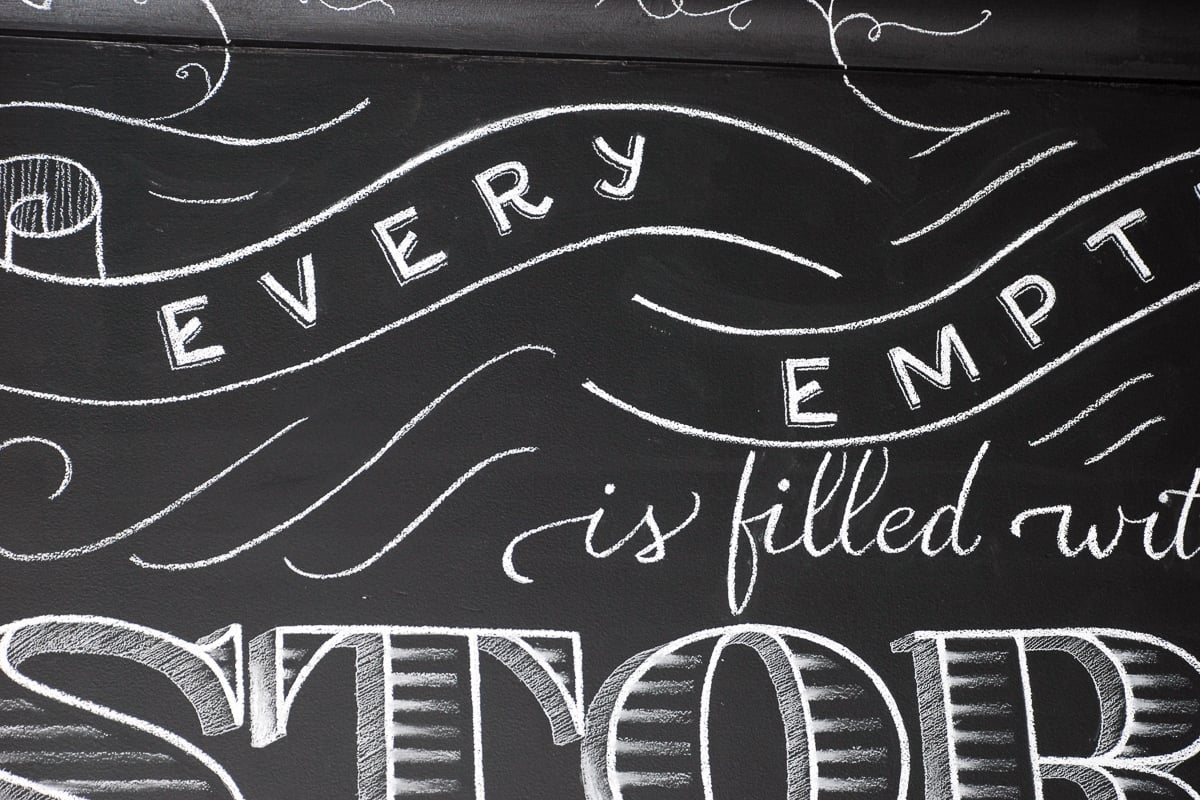 EVERY
EMPT
is filled wit
STOR